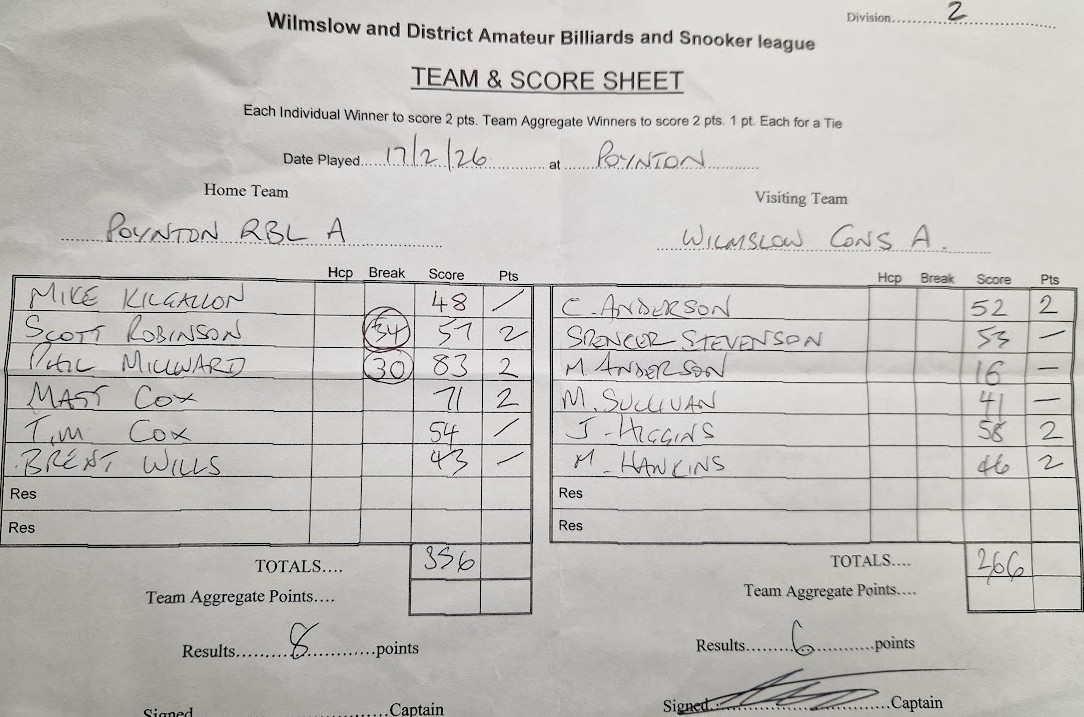 Division..... 2
Wilmslow and District Amateur Billiards and Snooker league
TEAM & SCORE SHEET
Each Individual Winner to score 2 pts. Team Aggregate Winners to score 2 pts. 1 pt. Each for a Tie
Date Played..... 17/2/26 ..... at ..... POYNTON
Home Team Visiting Team
POYNTON RBL A WILMSLOW CONS A.
Hcp Break Score Pts Hcp Break Score Pts
MIKE KILGALLON 48 / C. ANDERSON 52 2
SCOTT ROBINSON 34 57 2 SPENCER STEVENSON 53 –
PHIL MILLWARD 30 83 2 M. ANDERSON 16 –
MATT COX 71 2 M. SULLIVAN 41 –
TIM COX 54 / J. HIGGINS 58 2
BRENT WILLS 43 – M. HANKINS 46 2
Res Res
Res Res
TOTALS.... 356 TOTALS.... 266
Team Aggregate Points.... Team Aggregate Points....
Results........ 8 ............points Results........ 6 ............points
Signed ......Captain Signed ......Captain